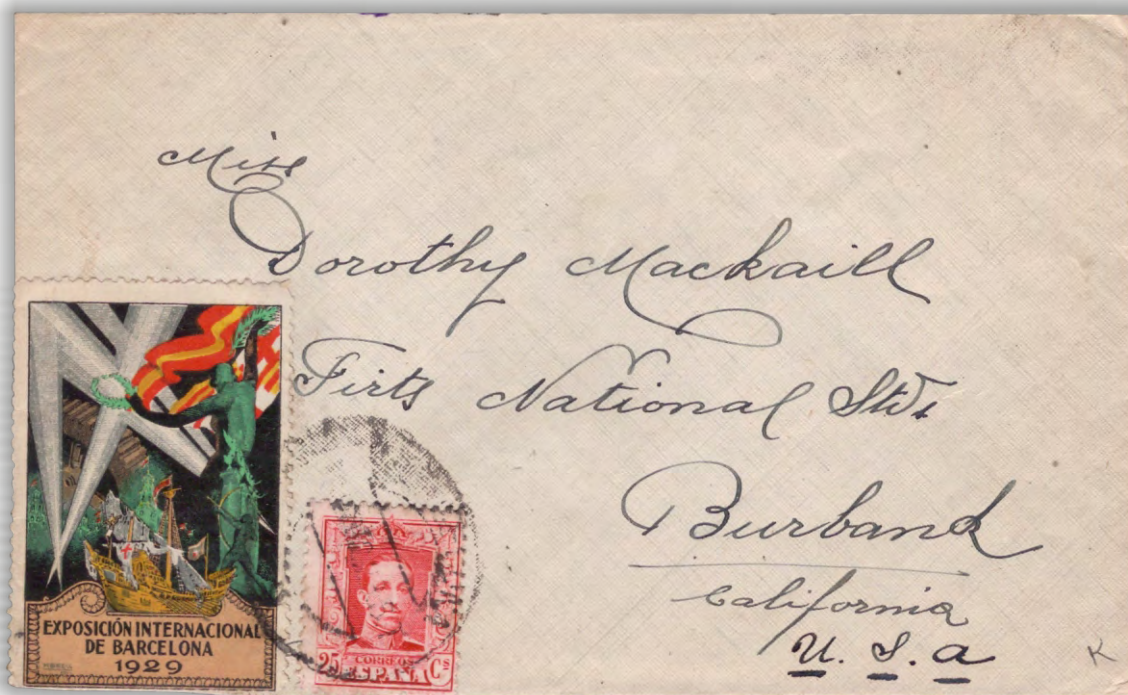 Miss
Dorothy Mackaill
Firts National Stds
Burband
California
U. S. a
K
EXPOSICIÓN INTERNACIONAL
DE BARCELONA
1929
25 CORREOS Cs
ESPAÑA